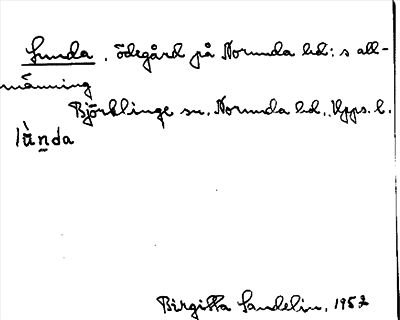 Lunda, ödegård på Norunda hd:s all-
männing
Björklinge sn, Norunda hd, Upps. l.
lù̀n̠da
Birgitta Sandelin, 1952